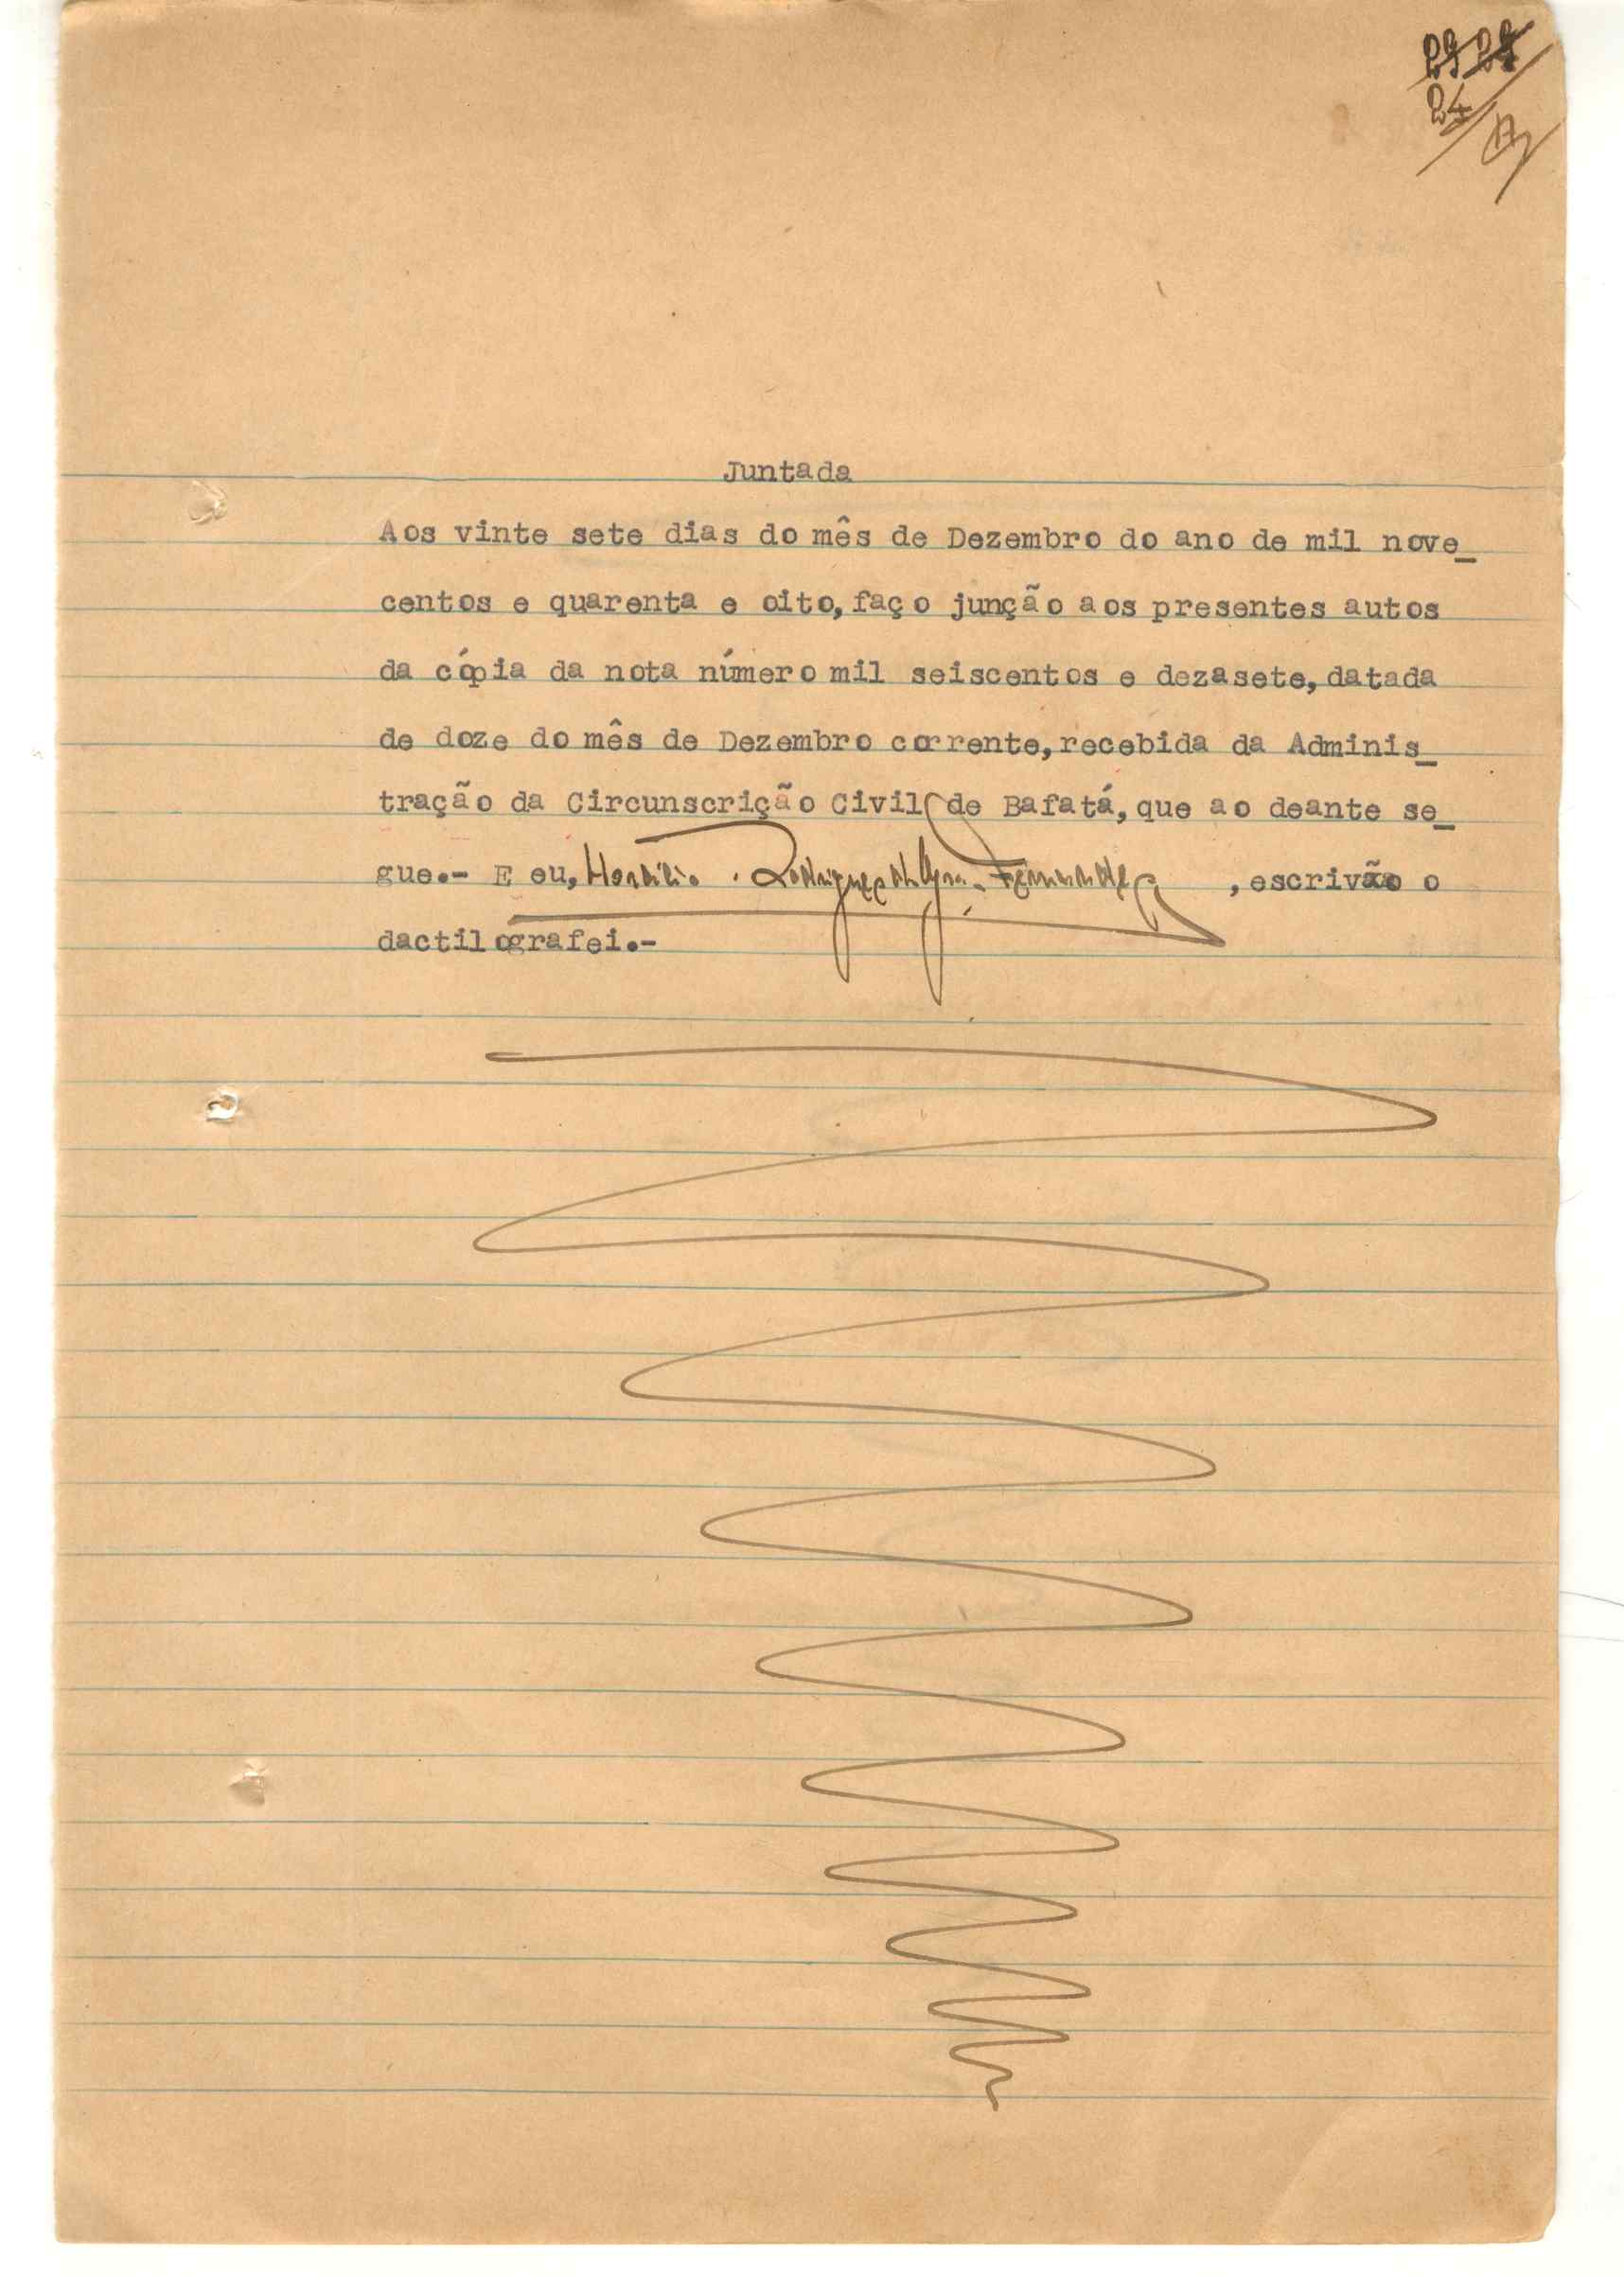 24
Juntada
Aos vinte sete dias do mês de Dezembro do ano de mil nove_
centos e quarenta e oito, faço junção aos presentes autos
da cópia da nota número mil seiscentos e dezasete, datada
de doze do mês de Dezembro corrente, recebida da Adminis_
tração da Circunscrição Civil de Bafatá, que ao deante se_
gue.- E eu, Rodrigues Fernandes, escrivão o
dactilografei.-